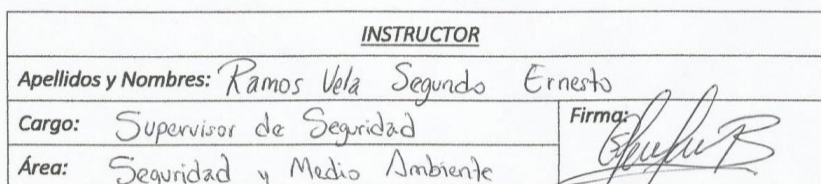 INSTRUCTOR
Apellidos y Nombres: Ramos Vela Segundo Ernesto
Cargo: Supervisor de Seguridad Firma:
Área: Seguridad y Medio Ambiente